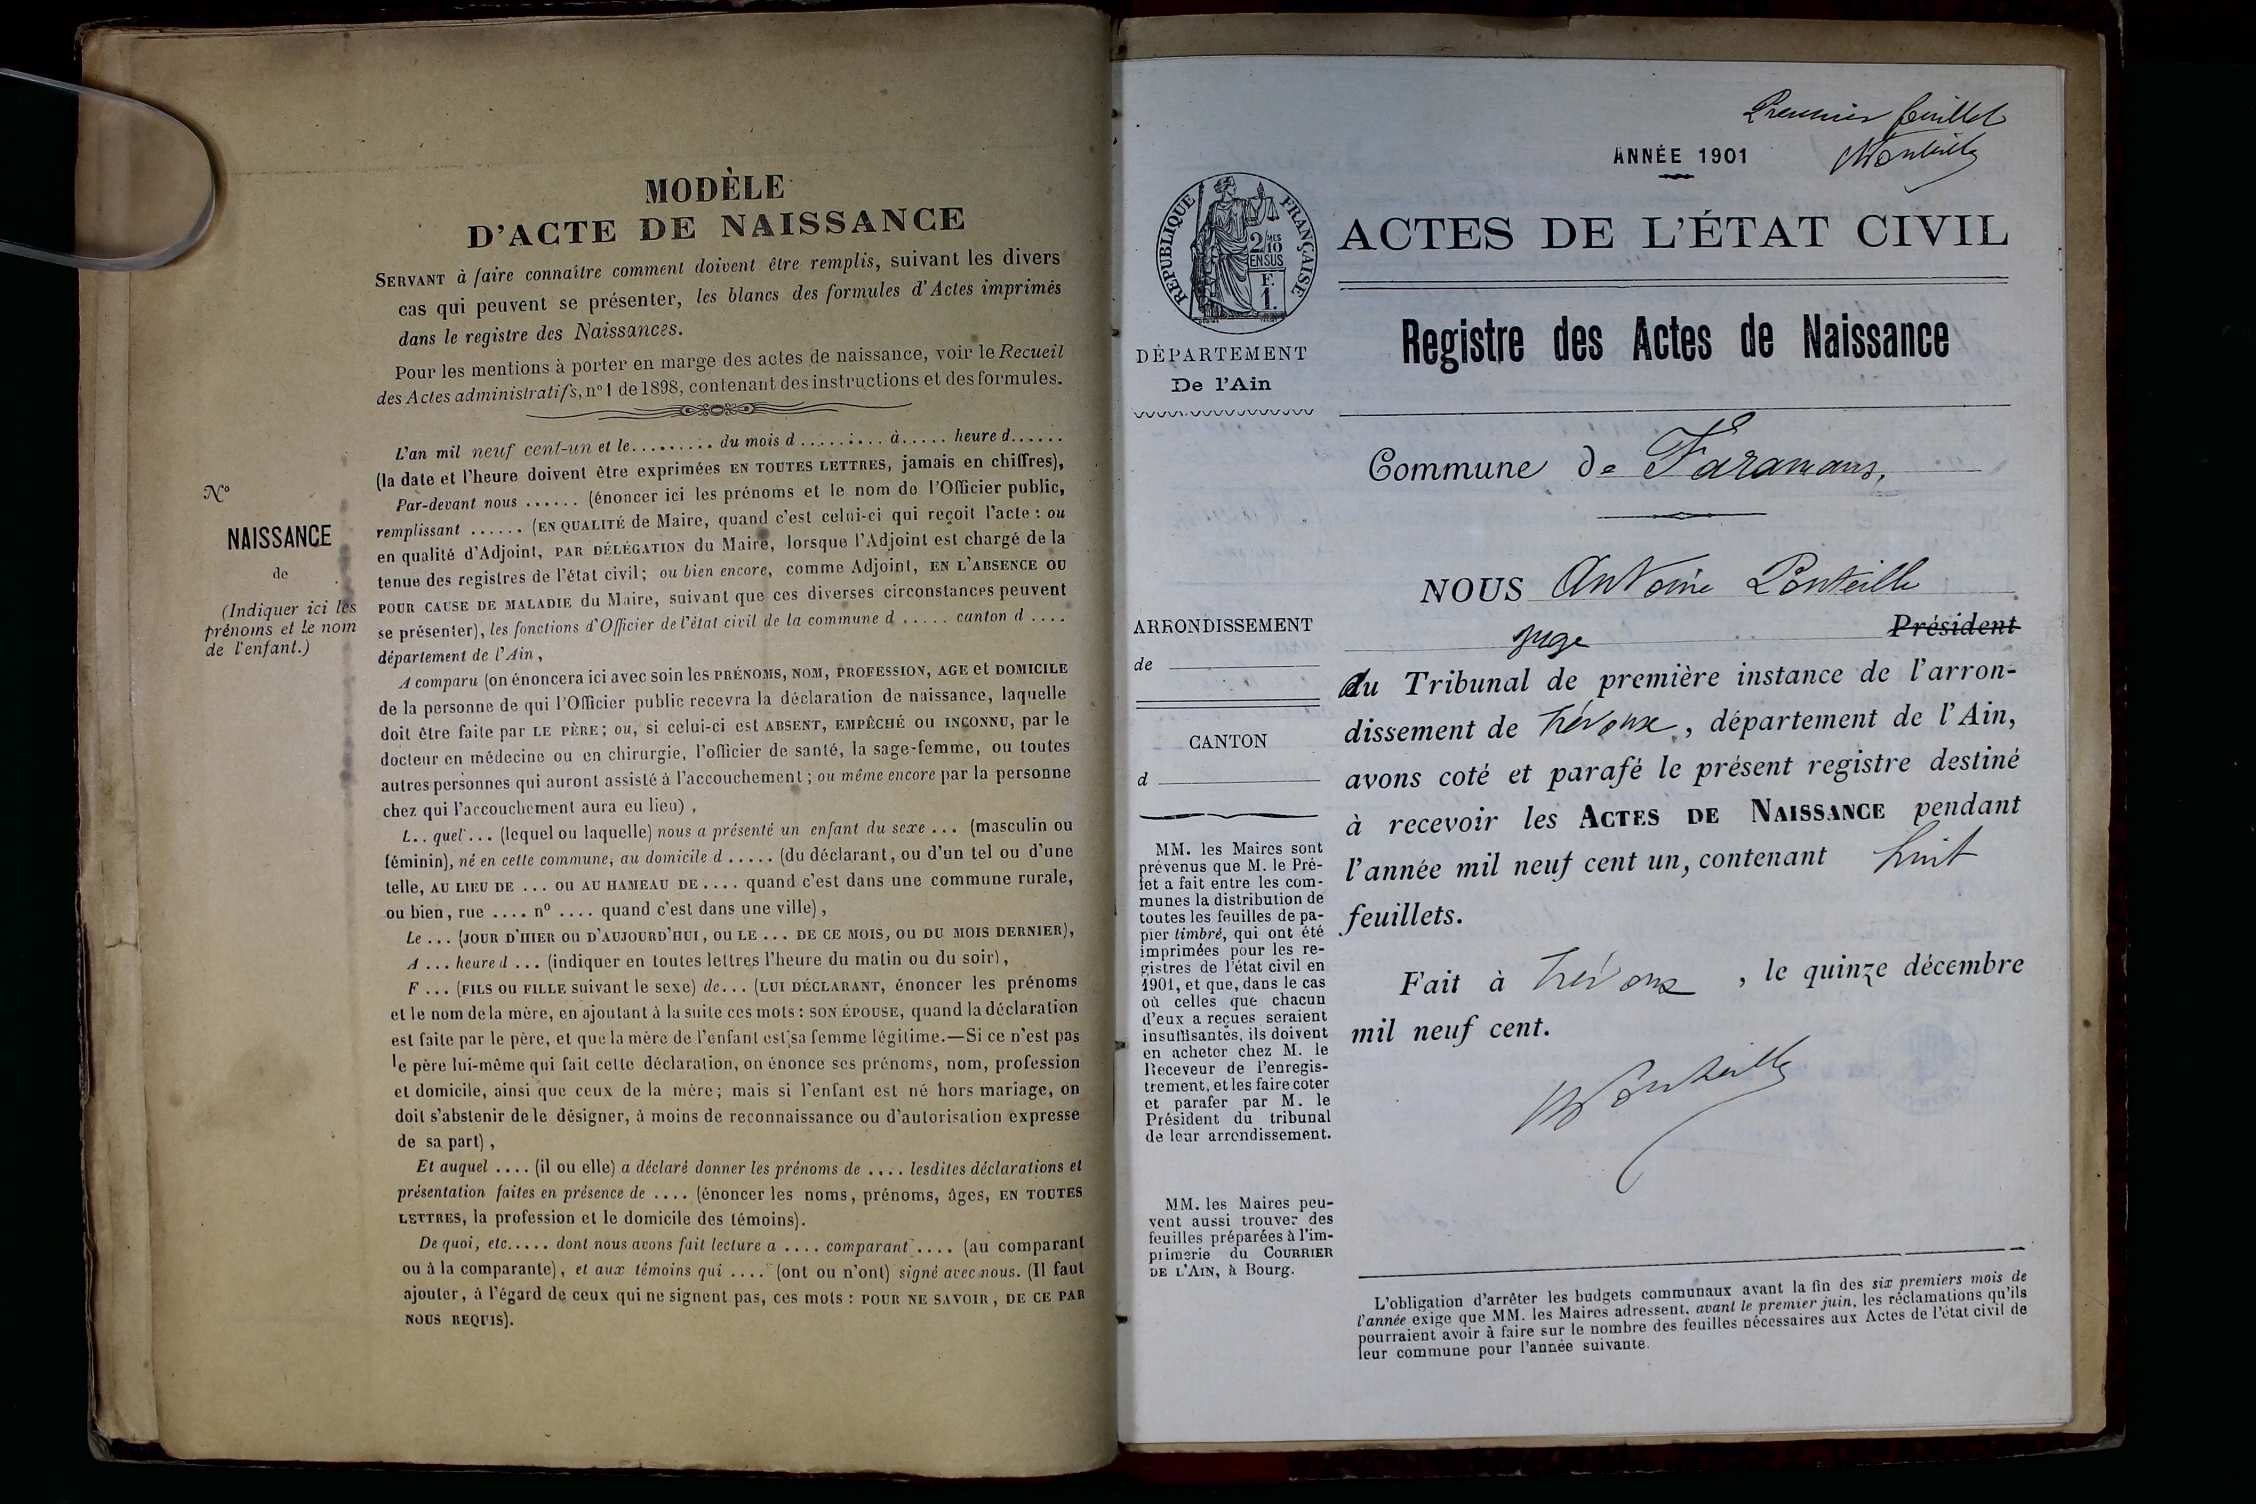 MODÈLE
D'ACTE DE NAISSANCE
SERVANT à faire connaître comment doivent être remplis, suivant les divers
cas qui peuvent se présenter, les blancs des formules d'Actes imprimés
dans le registre des Naissances.
Pour les mentions à porter en marge des actes de naissance, voir le Recueil
des Actes administratifs, nº 1 de 1898, contenant des instructions et des formules.
L'an mil neuf cent-un et le......... du mois d ......... à..... heure d......
(la date et l'heure doivent être exprimées EN TOUTES LETTRES, jamais en chiffres),
Par-devant nous ...... (énoncer ici les prénoms et le nom de l'Officier public,
remplissant ...... (EN QUALITÉ de Maire, quand c'est celui-ci qui reçoit l'acte : ou
en qualité d'Adjoint, PAR DÉLÉGATION du Maire, lorsque l'Adjoint est chargé de la
tenue des registres de l'état civil; ou bien encore, comme Adjoint, EN L'ABSENCE OU
POUR CAUSE DE MALADIE du Maire, suivant que ces diverses circonstances peuvent
se présenter), les fonctions d'Officier de l'état civil de la commune d ..... canton d ....
département de l'Ain,
A comparu (on énoncera ici avec soin les PRÉNOMS, NOM, PROFESSION, AGE et DOMICILE
de la personne de qui l'Officier public recevra la déclaration de naissance, laquelle
doit être faite par LE PÈRE; ou, si celui-ci est ABSENT, EMPÊCHÉ OU INCONNU, par le
docteur en médecine ou en chirurgie, l'officier de santé, la sage-femme, ou toutes
autres personnes qui auront assisté à l'accouchement; ou même encore par la personne
chez qui l'accouchement aura eu lieu),
L.. quel... (lequel ou laquelle) nous a présenté un enfant du sexe ... (masculin ou
féminin), né en cette commune, au domicile d ..... (du déclarant, ou d'un tel ou d'une
telle, AU LIEU DE ... OU AU HAMEAU DE .... quand c'est dans une commune rurale,
ou bien, rue .... nº .... quand c'est dans une ville),
Le ... (JOUR D'HIER OU D'AUJOURD'HUI, OU LE ... DE CE MOIS, OU DU MOIS DERNIER),
A ... heure d ... (indiquer en toutes lettres l'heure du matin ou du soir),
F ... (FILS OU FILLE suivant le sexe) de... (LUI DÉCLARANT, énoncer les prénoms
et le nom de la mère, en ajoutant à la suite ces mots : SON ÉPOUSE, quand la déclaration
est faite par le père, et que la mère de l'enfant est sa femme légitime.—Si ce n'est pas
le père lui-même qui fait cette déclaration, on énonce ses prénoms, nom, profession
et domicile, ainsi que ceux de la mère; mais si l'enfant est né hors mariage, on
doit s'abstenir de le désigner, à moins de reconnaissance ou d'autorisation expresse
de sa part),
Et auquel .... (il ou elle) a déclaré donner les prénoms de .... lesdites déclarations et
présentation faites en présence de .... (énoncer les noms, prénoms, âges, EN TOUTES
LETTRES, la profession et le domicile des témoins).
De quoi, etc..... dont nous avons fait lecture a .... comparant .... (au comparant
ou à la comparante), et aux témoins qui .... (ont ou n'ont) signé avec nous. (Il faut
ajouter, à l'égard de ceux qui ne signent pas, ces mots : POUR NE SAVOIR, DE CE PAR
NOUS REQUIS).
Nº
NAISSANCE
de
(Indiquer ici les
prénoms et le nom
de l'enfant.)
Premier feuillet
Ponteille
ANNÉE 1901
RÉPUBLIQUE FRANÇAISE
2/10 MES
EN SUS
F.
1.
DÉPARTEMENT
De l'Ain
ARRONDISSEMENT
de
CANTON
d
MM. les Maires sont
prévenus que M. le Pré-
fet a fait entre les com-
munes la distribution de
toutes les feuilles de pa-
pier timbré, qui ont été
imprimées pour les re-
gistres de l'état civil en
1901, et que, dans le cas
où celles que chacun
d'eux a reçues seraient
insuffisantes, ils doivent
en acheter chez M. le
Receveur de l'enregis-
trement, et les faire coter
et parafer par M. le
Président du tribunal
de leur arrondissement.
MM. les Maires peu-
vent aussi trouver des
feuilles préparées à l'im-
primerie du COURRIER
DE L'AIN, à Bourg.
ACTES DE L'ÉTAT CIVIL
Registre des Actes de Naissance
Commune de Faramans,
NOUS Antoine Ponteille
juge Président
du Tribunal de première instance de l'arron-
dissement de Trévoux, département de l'Ain,
avons coté et parafé le présent registre destiné
à recevoir les ACTES DE NAISSANCE pendant
l'année mil neuf cent un, contenant huit
feuillets.
Fait à Trévoux, le quinze décembre
mil neuf cent.
Ponteille
L'obligation d'arrêter les budgets communaux avant la fin des six premiers mois de
l'année exige que MM. les Maires adressent, avant le premier juin, les réclamations qu'ils
pourraient avoir à faire sur le nombre des feuilles nécessaires aux Actes de l'état civil de
leur commune pour l'année suivante.